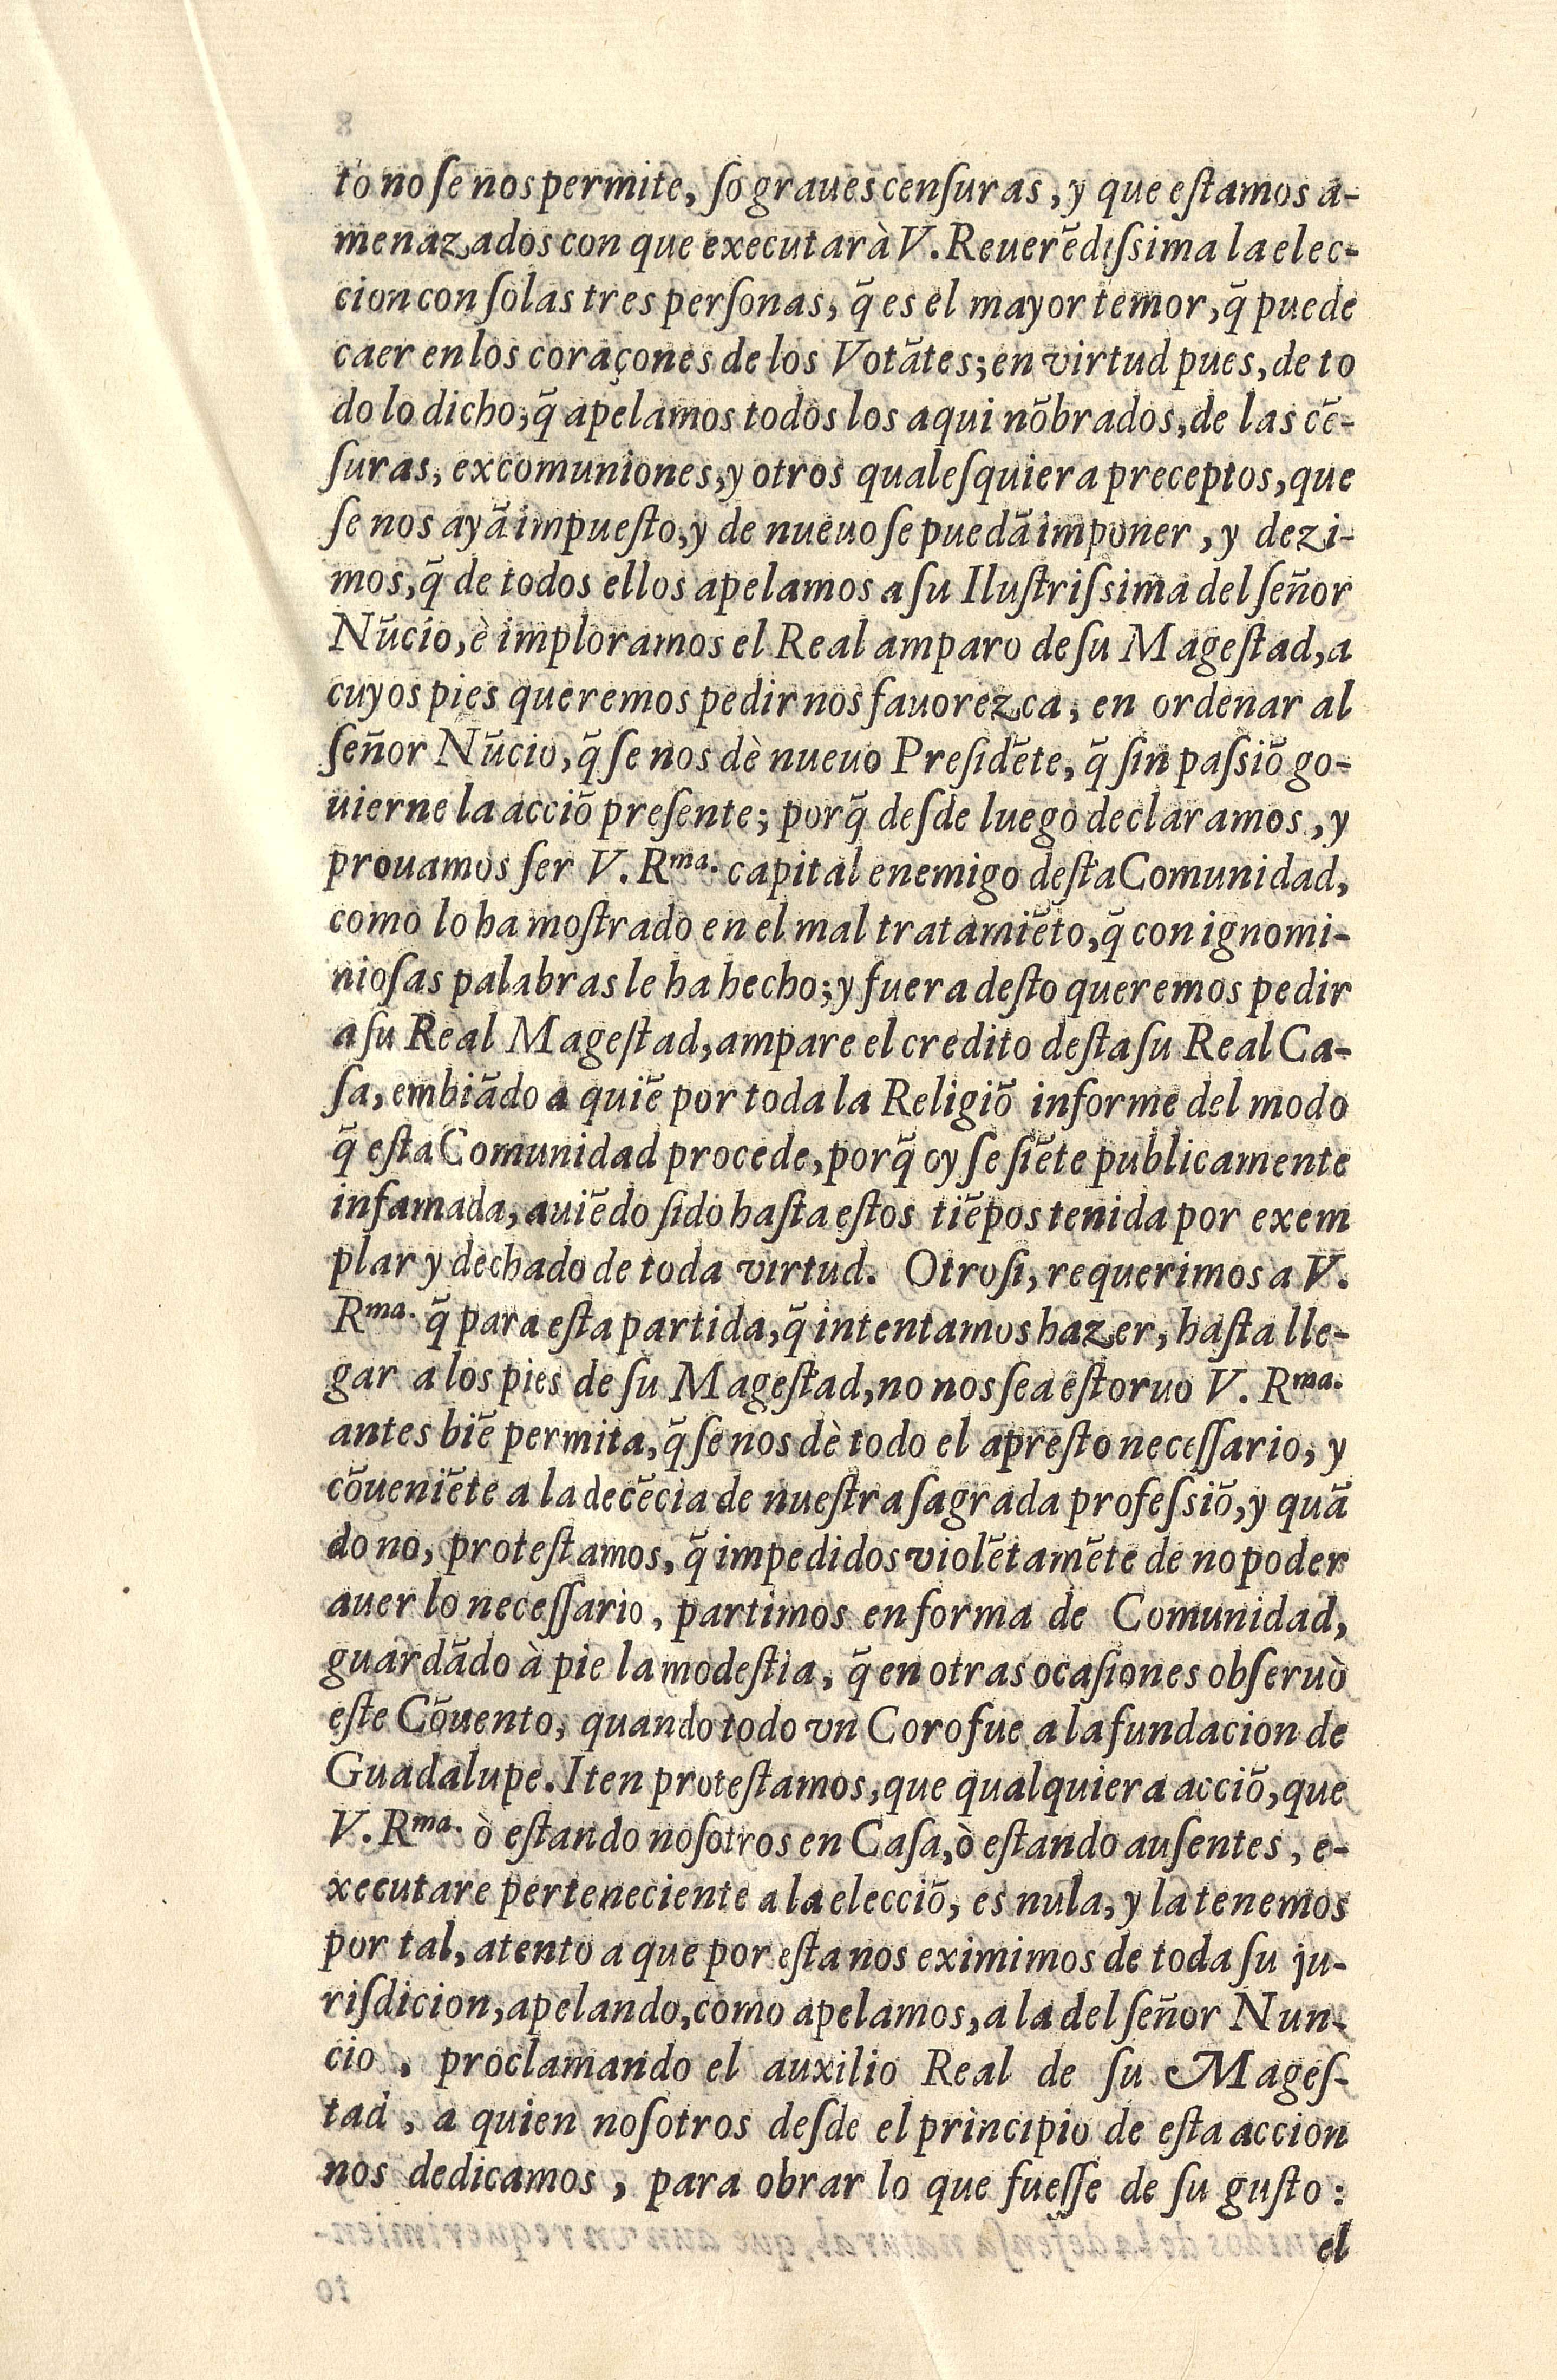 to no ſe nos permite, ſo graues cenſuras, y que eſtamos a-
menazados con que executarà V. Reuerẽdiſsima la elec-
cion con ſolas tres perſonas, q̃ es el mayor temor, q̃ puede
caer en los coraçones de los Votãtes; en virtud pues, de to
do lo dicho, q̃ apelamos todos los aqui nõbrados, de las cẽ-
ſuras, excomuniones, y otros qualeſquiera preceptos, que
ſe nos ayã impueſto, y de nueuo ſe puedã imponer, y dezi-
mos, q̃ de todos ellos apelamos a ſu Iluſtriſsima del ſeñor
Nũcio, è imploramos el Real amparo de ſu Mageſtad, a
cuyos pies queremos pedir nos fauorezca, en ordenar al
ſeñor Nũcio, q̃ ſe nos dè nueuo Preſidẽte, q̃ ſin paſsiõ go-
uierne la acciõ preſente; porq̃ deſde luego declaramos, y
prouamos ſer V. Rᵐᵃ. capital enemigo deſta Comunidad,
como lo ha moſtrado en el mal tratamiẽto, q̃ con ignomi-
nioſas palabras le ha hecho; y fuera deſto queremos pedir
a ſu Real Mageſtad, ampare el credito deſta ſu Real Ca-
ſa, embiãdo a quiẽ por toda la Religiõ informe del modo
q̃ eſta Comunidad procede, porq̃ oy ſe ſiẽte publicamente
infamada, auiẽdo ſido haſta eſtos tiẽpos tenida por exem
plar y dechado de toda virtud. Otroſi, requerimos a V.
Rᵐᵃ. q̃ para eſta partida, q̃ intentamos hazer, haſta lle-
gar a los pies de ſu Mageſtad, no nos ſea eſtoruo V. Rᵐᵃ.
antes biẽ permita, q̃ ſe nos dè todo el apreſto neceſſario, y
cõueniẽte a la decẽcia de nueſtra ſagrada profeſsiõ, y quã
do no, proteſtamos, q̃ impedidos violẽtamẽte de no poder
auer lo neceſſario, partimos en forma de Comunidad,
guardãdo à pie la modeſtia, q̃ en otras ocaſiones obſeruò
eſte Cõuento, quando todo vn Coro fue a la fundacion de
Guadalupe. Iten proteſtamos, que qualquiera acciõ, que
V. Rᵐᵃ. ò eſtando noſotros en Caſa, ò eſtando auſentes, e-
xecutare perteneciente a la elecciõ, es nula, y la tenemos
por tal, atento a que por eſta nos eximimos de toda ſu ju-
riſdicion, apelando, como apelamos, a la del ſeñor Nun-
cio, proclamando el auxilio Real de ſu Mageſ-
tad, a quien noſotros deſde el principio de eſta accion
nos dedicamos, para obrar lo que fueſſe de ſu guſto:
el